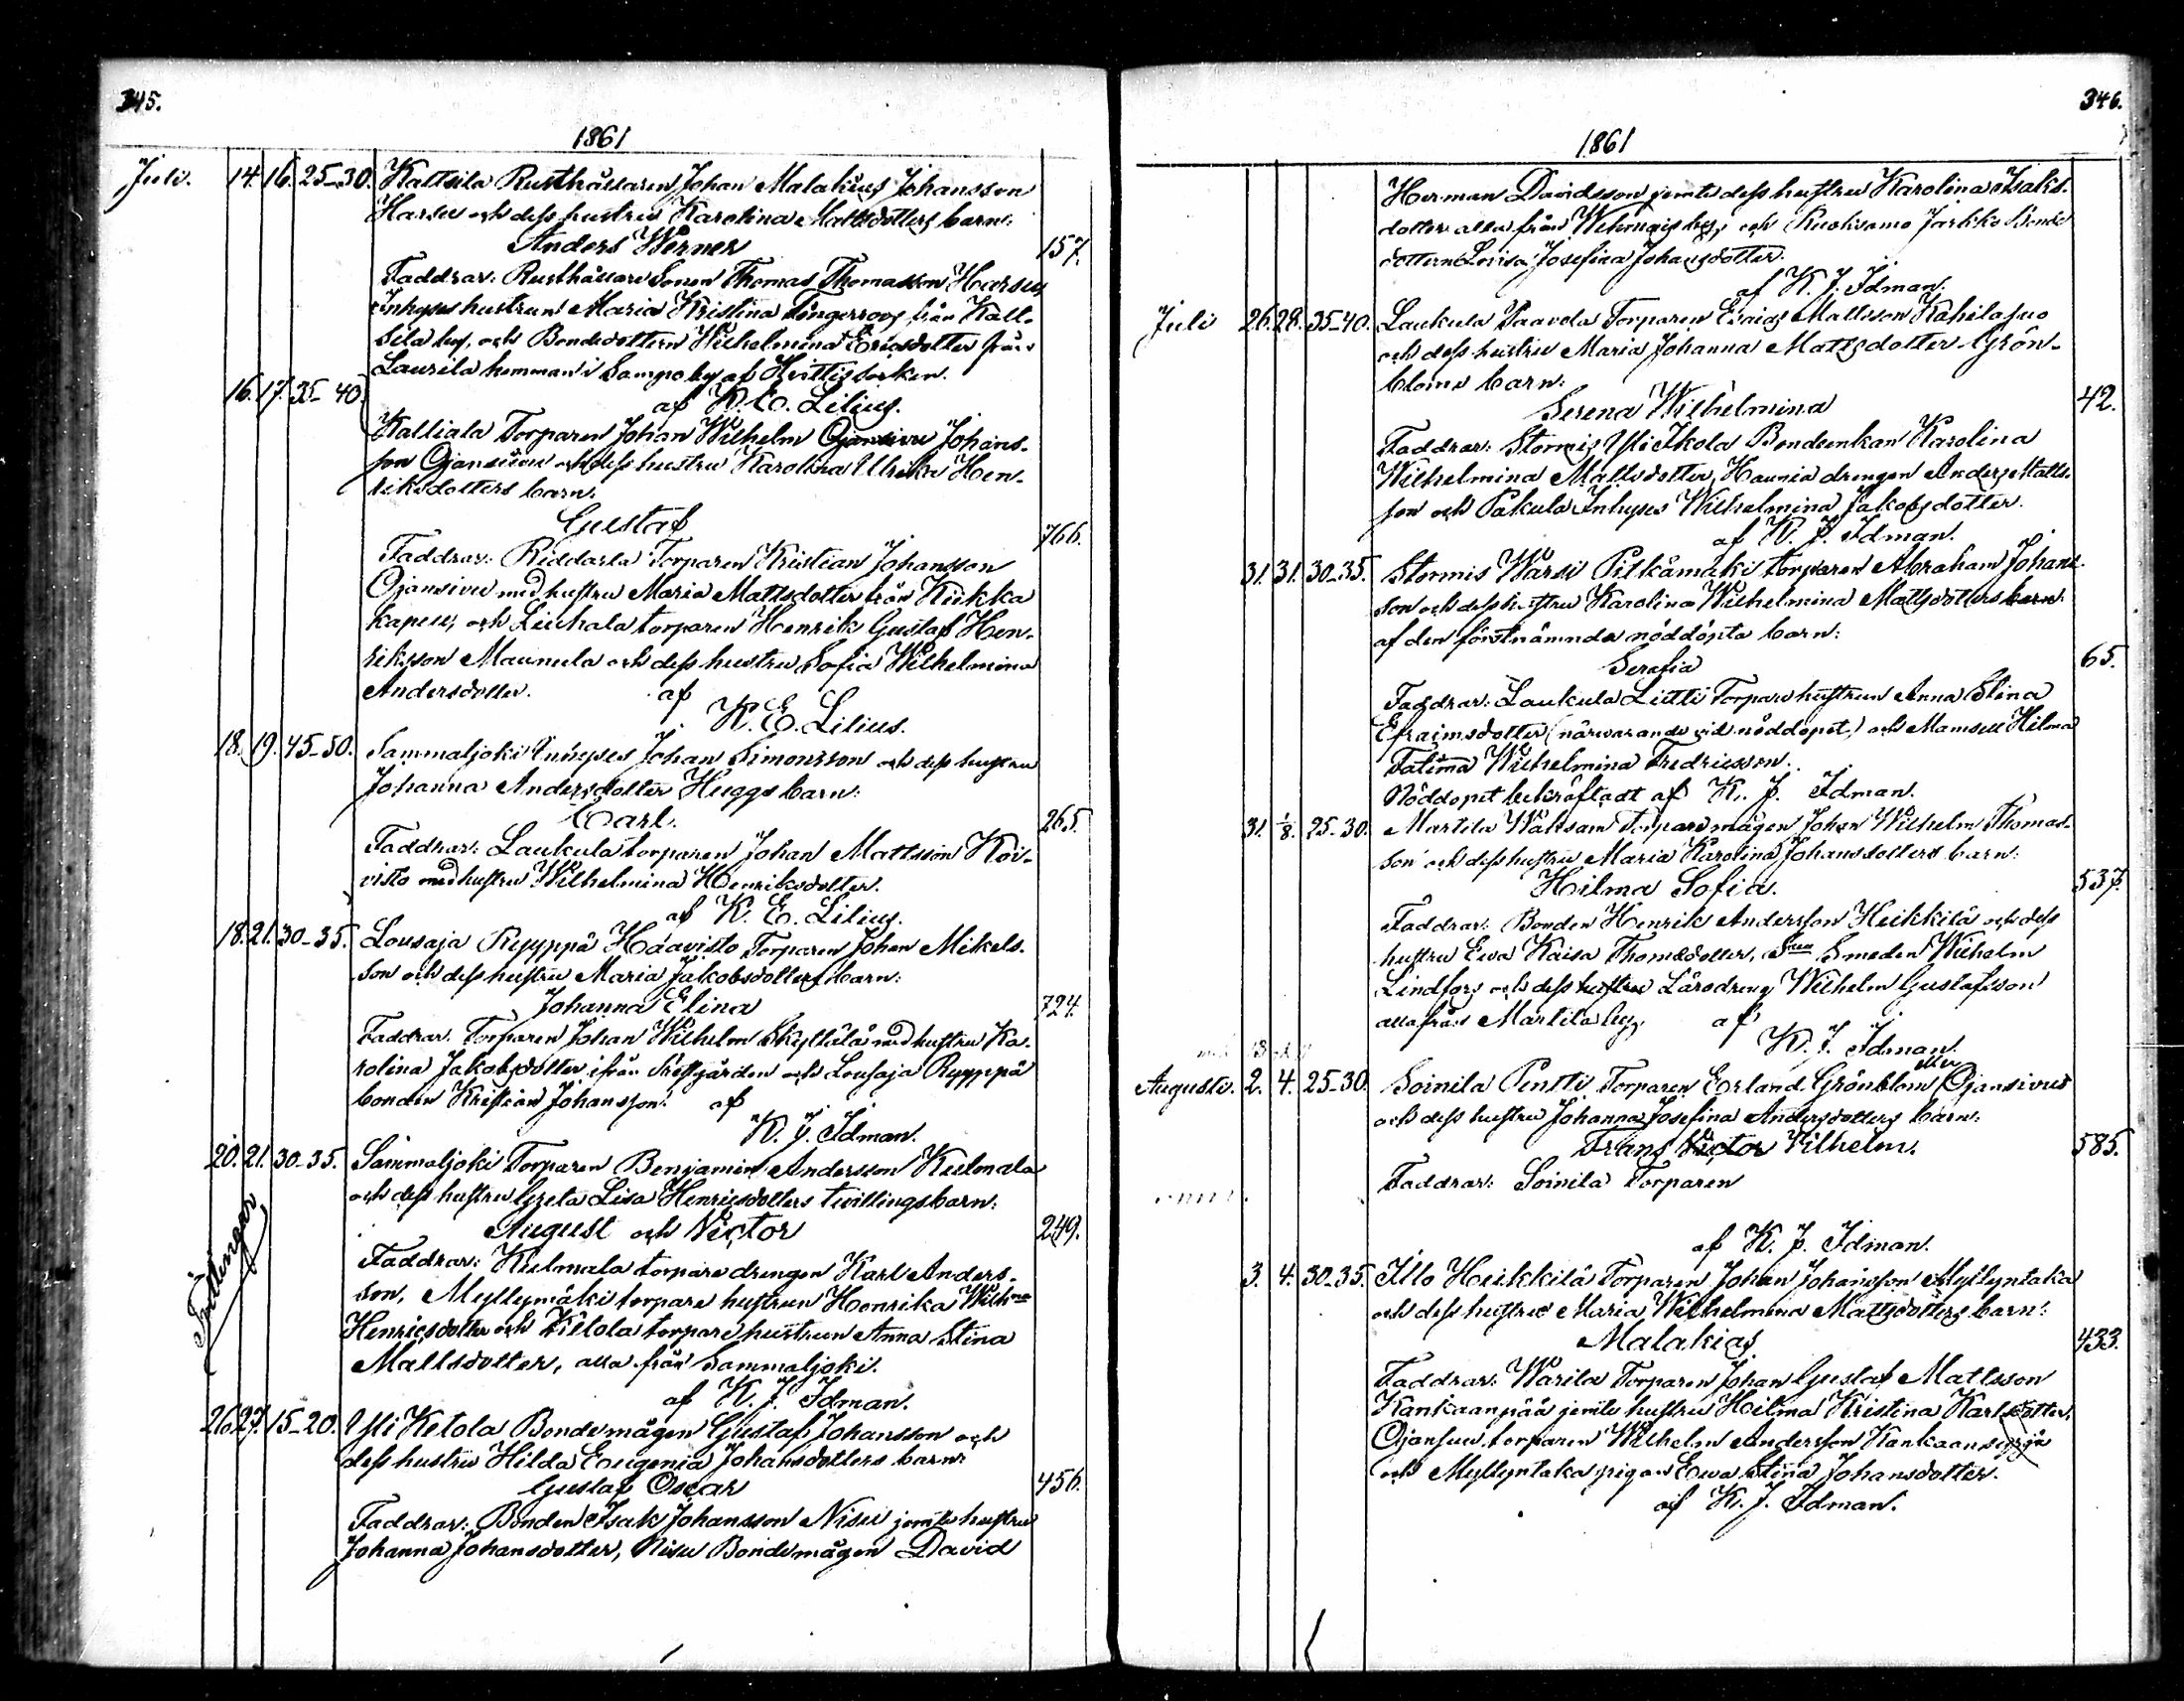 345.
1861
Juli. 14. 16. 25-30. Kattsila Rusthållaren Johan Malakias Johansson
Harsu och dess hustru Karolina Mattsdotters barn:
Anders Werner 157.
Faddrar: Rusthållare Sonen Thomas Thomasson Harsu,
Inhyses hustrun Maria Kristina Fingerroos från Katt-
sila by, och Bondedottern Wilhelmina Ericsdotter från
Laurila hemman i Sampo by af Hvittis socken.
af K. E. Lilius.
16. 17. 35-40 Kalliala Torparen Johan Wilhelm Ojansivu Johans-
son Ojansivu och dess hustru Karolina Ulrika Hen-
riksdotters barn:
Gustaf 766.
Faddrar: Riddarla Torparen Kristian Johansson
Ojansivu med hustru Maria Mattsdotter från Kiikka
kapell, och Liuhala torparen Henrik Gustaf Hen-
riksson Maunula och dess hustru Sofia Wilhelmina
Andersdotter. af
K. E. Lilius.
18. 19. 45-50. Sammaljoki Inhyses Johan Simonsson och dess hustru
Johanna Andersdotter Huggs barn:
Carl. 265.
Faddrar: Laukula torparen Johan Mattsson Koi-
visto med hustru Wilhelmina Henriksdotter.
af K. E. Lilius.
18. 21. 30-35. Lousaja Ryyppä Haavisto Torparen Johan Mikels-
son och dess hustru Maria Jakobsdotters barn:
Johanna Elina 724.
Faddrar: Torparen Johan Wilhelm Skyttälä med hustru Ka-
rolina Jakobsdotter ifrån Prestgården och Lousaja Ryyppä
bonden Kristian Johansson. af
K. J. Idman.
20. 21. 30-35. Sammaljoki Torparen Benjamin Andersson Kulmala
och dess hustru Greta Lisa Henricsdotters twillingsbarn:
August och Victor 249.
Faddrar: Kulmala torpare drengen Karl Anders-
son, Myllymäki torpare hustrun Henrika Wilh:na
Henricsdotter och Ketola torpare hustrun Anna Stina
Mattsdotter, alla från Sammaljoki.
af K. J. Idman.
26. 27. 15-20. Yli Ketola Bondemågen Gustaf Johansson och
dess hustru Hilda Eugenia Johansdotters barn:
Gustaf Oscar 456.
Faddrar: Bonden Isak Johansson Nisu jemte hustru
Johanna Johansdotter, Nisu Bondemågen David
346.
1861
Herman Davidsson jemte dess hustru Karolina Isaks-
dotter alla från by, och Ruoksamo Jaskko Bonde
dottern Lovisa Josefina Johansdotter.
af K. J. Idman.
Juli 26. 28. 35-40. Laukula Paavola Torparen Esaias Mattsson Kahilasuo
och dess hustru Maria Johanna Mattsdotter Grön-
bloms barn:
Serena Wilhelmina 42.
Faddrar: Stormis Yli Ikola Bondeenkan Karolina
Wilhelmina Mattsdotter, Haunia drengen Anders Matts-
son och Pakula Inhyses Wilhelmina Jakobsdotter.
af K. J. Idman.
31. 31. 30-35. Stormis Warsi Pitkämäki torparen Abraham Johans-
son och dess hustru Karolina Wilhelmina Mattsdotters barn
af den förstnämnda nöddöpta barn:
Serafia 65.
Faddrar: Laukula Litti Torpare hustrun Anna Stina
Efraimsdotter (närvarande vid nöddopet) och Mamsell Hilma
Fatima Wilhelmina Fredricsson.
Nöddopet bekräftadt af K. J. Idman.
31. 1/8. 25-30. Martila Wäksam Torparemågen Johan Wilhelm Thomas-
son och dess hustru Maria Karolina Johansdotters barn:
Hilma Sofia. 537.
Faddrar: Bonden Henrik Andersson Heikkilä och dess
hustru Ewa Kaisa Thomasdotter, Smeden Wilhelm
Lindfors och dess hustru Lärodreng Wilhelm Gustafsson
alla från Martila by, af
K. J. Idman.
Augusti. 2. 4. 25-30. Soinila Pentti Torparen Erland Grönblom eller Ojansivus
och dess hustru Johanna Josefina Andersdotters barn:
Frans Victor Vilhelm. 585.
Faddrar: Soinila Torparen
af K. J. Idman.
3. 4. 30-35. Illo Heikkilä Torparen Johan Johansson Myllyntaka
och dess hustru Maria Wilhelmina Mattsdotters barn:
Malakias 433.
Faddrar: Warila Torparen Johan Gustaf Mattsson
Kankaanpää jemte hustru Hilma Kristina Karlsdotter,
Ojansuu torparen Wilhelm Andersson
och Myllyntaka pigan Ewa Stina Johansdotter.
af K. J. Idman.